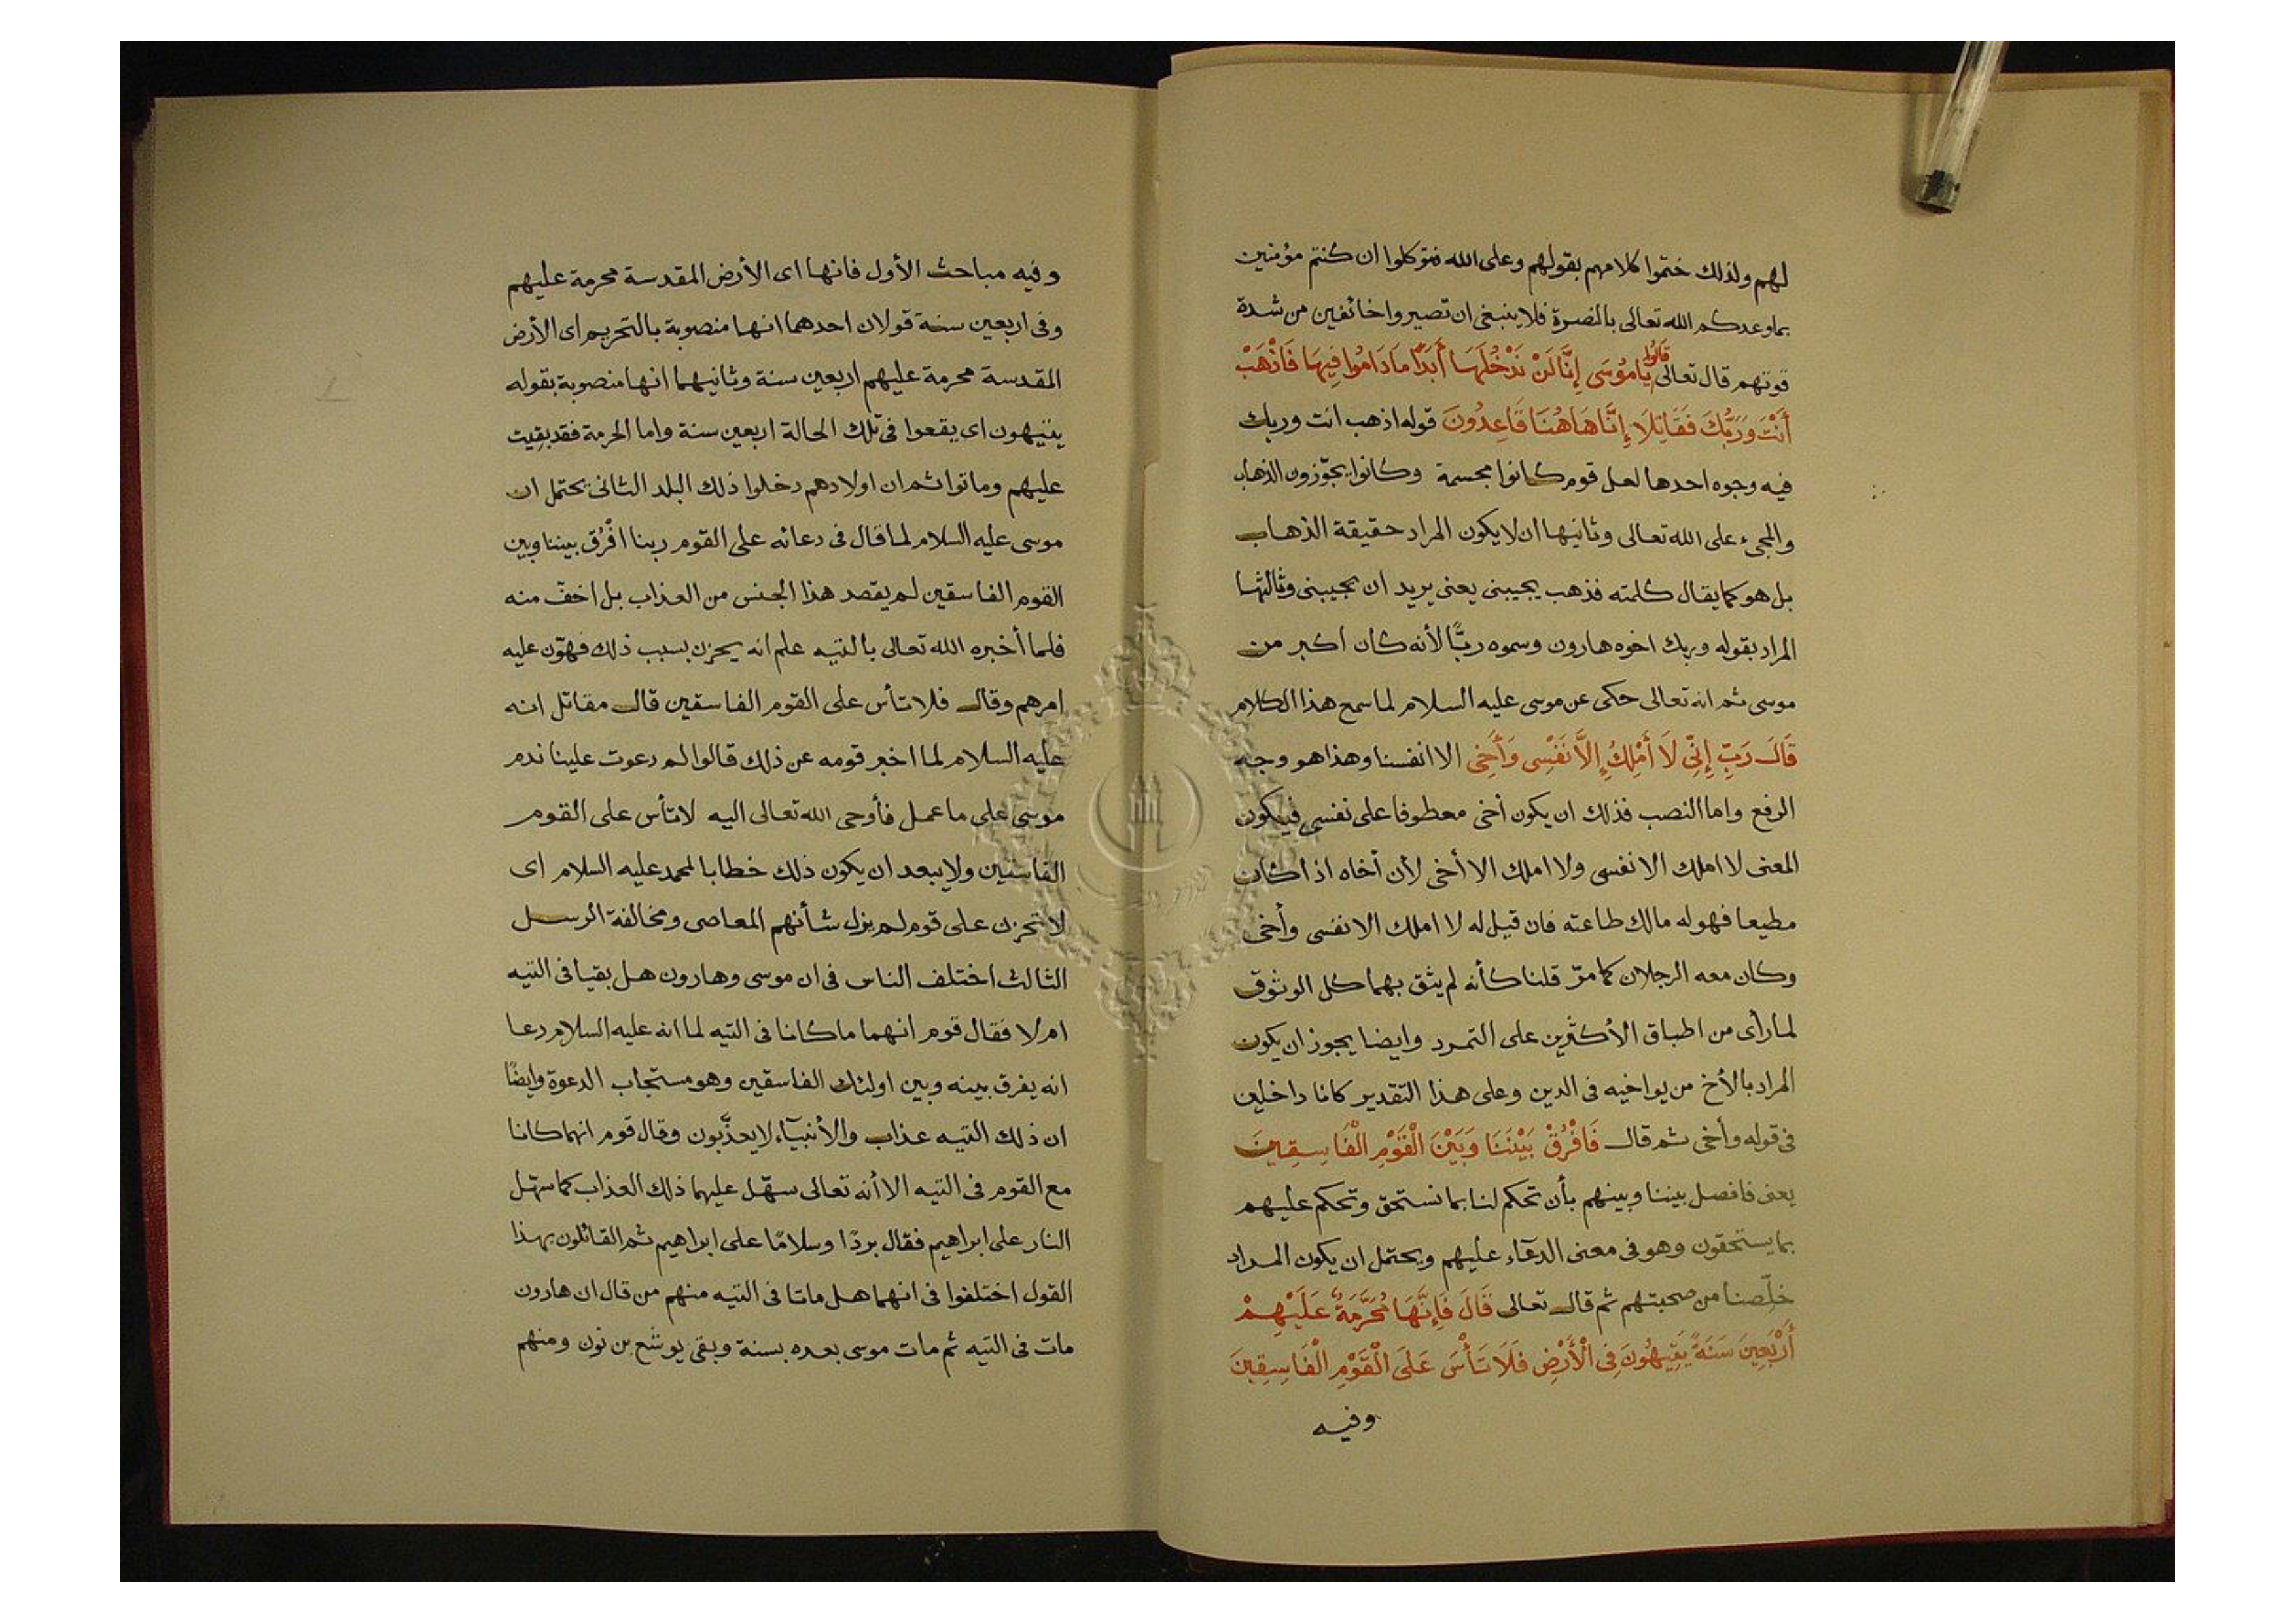 لهم ولذلك ختموا كلامهم بقولهم وعلى الله فتوكلوا ان كنتم مؤمنين
بما وعدكم الله تعالى بالنصرة فلا ينبغى ان تصيروا خائفين من شدة
قوتهم قال تعالى قَالُوا يَامُوسَى إِنَّا لَنْ نَدْخُلَهَا أَبَدًا مَا دَامُوا فِيهَا فَاذْهَبْ
أَنْتَ وَرَبُّكَ فَقَاتِلَا إِنَّا هَاهُنَا قَاعِدُونَ قوله اذهب انت وربك
فيه وجوه احدها لعل قوم كانوا مجسمة وكانوا يجوّزون الذهاب
والمجىء على الله تعالى وثانيها ان لا يكون المراد حقيقة الذهاب
بل هو كما يقال كلمته فذهب يجيبنى يعنى يريد ان يجيبنى وثالثها
المراد بقوله وربك اخوه هارون وسموه ربًّا لأنه كان اكبر من
موسى ثم انه تعالى حكى عن موسى عليه السلام لما سمع هذا الكلام
قَالَ رَبِّ إِنِّى لَا أَمْلِكُ إِلَّا نَفْسِى وَأَخِى الا انفسنا وهذا هو وجه
الرفع واما النصب فذلك ان يكون أخى معطوفا على نفسى فيكون
المعنى لا املك الا نفسى ولا املك الا أخى لأن أخاه اذا كان
مطيعا فهو له مالك طاعته فان قيل له لا املك الا نفسى وأخى
وكان معه الرجلان كما مرّ قلنا كأنه لم يثق بهما كل الوثوق
لما رأى من اطباق الأكثرين على التمرد وايضا يجوز ان يكون
المراد بالأخ من يواخيه فى الدين وعلى هذا التقدير كانا داخلين
فى قوله وأخى ثم قال فَافْرُقْ بَيْنَنَا وَبَيْنَ الْقَوْمِ الْفَاسِقِينَ
يعنى فافصل بيننا وبينهم بأن تحكم لنا بما نستحق وتحكم عليهم
بما يستحقون وهو فى معنى الدعآء عليهم ويحتمل ان يكون المراد
خلّصنا من صحبتهم ثم قال تعالى قَالَ فَإِنَّهَا مُحَرَّمَةٌ عَلَيْهِمْ
أَرْبَعِينَ سَنَةً يَتِيهُونَ فِى الْأَرْضِ فَلَا تَأْسَ عَلَى الْقَوْمِ الْفَاسِقِينَ
وفيه
وفيه مباحث الأول فانها اى الأرض المقدسة محرمة عليهم
وفى اربعين سنة قولان احدهما انها منصوبة بالتحريم اى الأرض
المقدسة محرمة عليهم اربعين سنة وثانيهما انها منصوبة بقوله
يتيهون اى يقعوا فى تلك الحالة اربعين سنة واما الحرمة فقد بقيت
عليهم وماتوا ثم ان اولادهم دخلوا ذلك البلد الثانى يحتمل ان
موسى عليه السلام لما قال فى دعائه على القوم ربنا افْرُق بيننا وبين
القوم الفاسقين لم يقصد هذا الجنس من العذاب بل اخفّ منه
فلما أخبره الله تعالى بالتيه علم انه يحزن بسبب ذلك فهوّن عليه
امرهم وقال فلا تأس على القوم الفاسقين قال مقاتل انه
عليه السلام لما اخبر قومه عن ذلك قالوا لم دعوت علينا ندم
موسى على ما عمل فأوحى الله تعالى اليه لا تأس على القوم
الفاسقين ولا يبعد ان يكون ذلك خطابا لمحمد عليه السلام اى
لا تحزن على قوم لم يزل شأنهم المعاصى ومخالفة الرسل
الثالث اختلف الناس فى ان موسى وهارون هل بقيا فى التيه
ام لا فقال قوم انهما ما كانا فى التيه لما انه عليه السلام دعا
انه يفرق بينه وبين اولئك الفاسقين وهو مستجاب الدعوة وايضًا
ان ذلك التيه عذاب والأنبيآء لا يعذّبون وقال قوم انهما كانا
مع القوم فى التيه الا أنه تعالى سهّل عليهما ذلك العذاب كما سهّل
النار على ابراهيم فقال بردًا وسلامًا على ابراهيم ثم القائلون بهذا
القول اختلفوا فى انهما هل ماتا فى التيه منهم من قال ان هارون
مات فى التيه ثم مات موسى بعده بسنة وبقى يوشع بن نون ومنهم